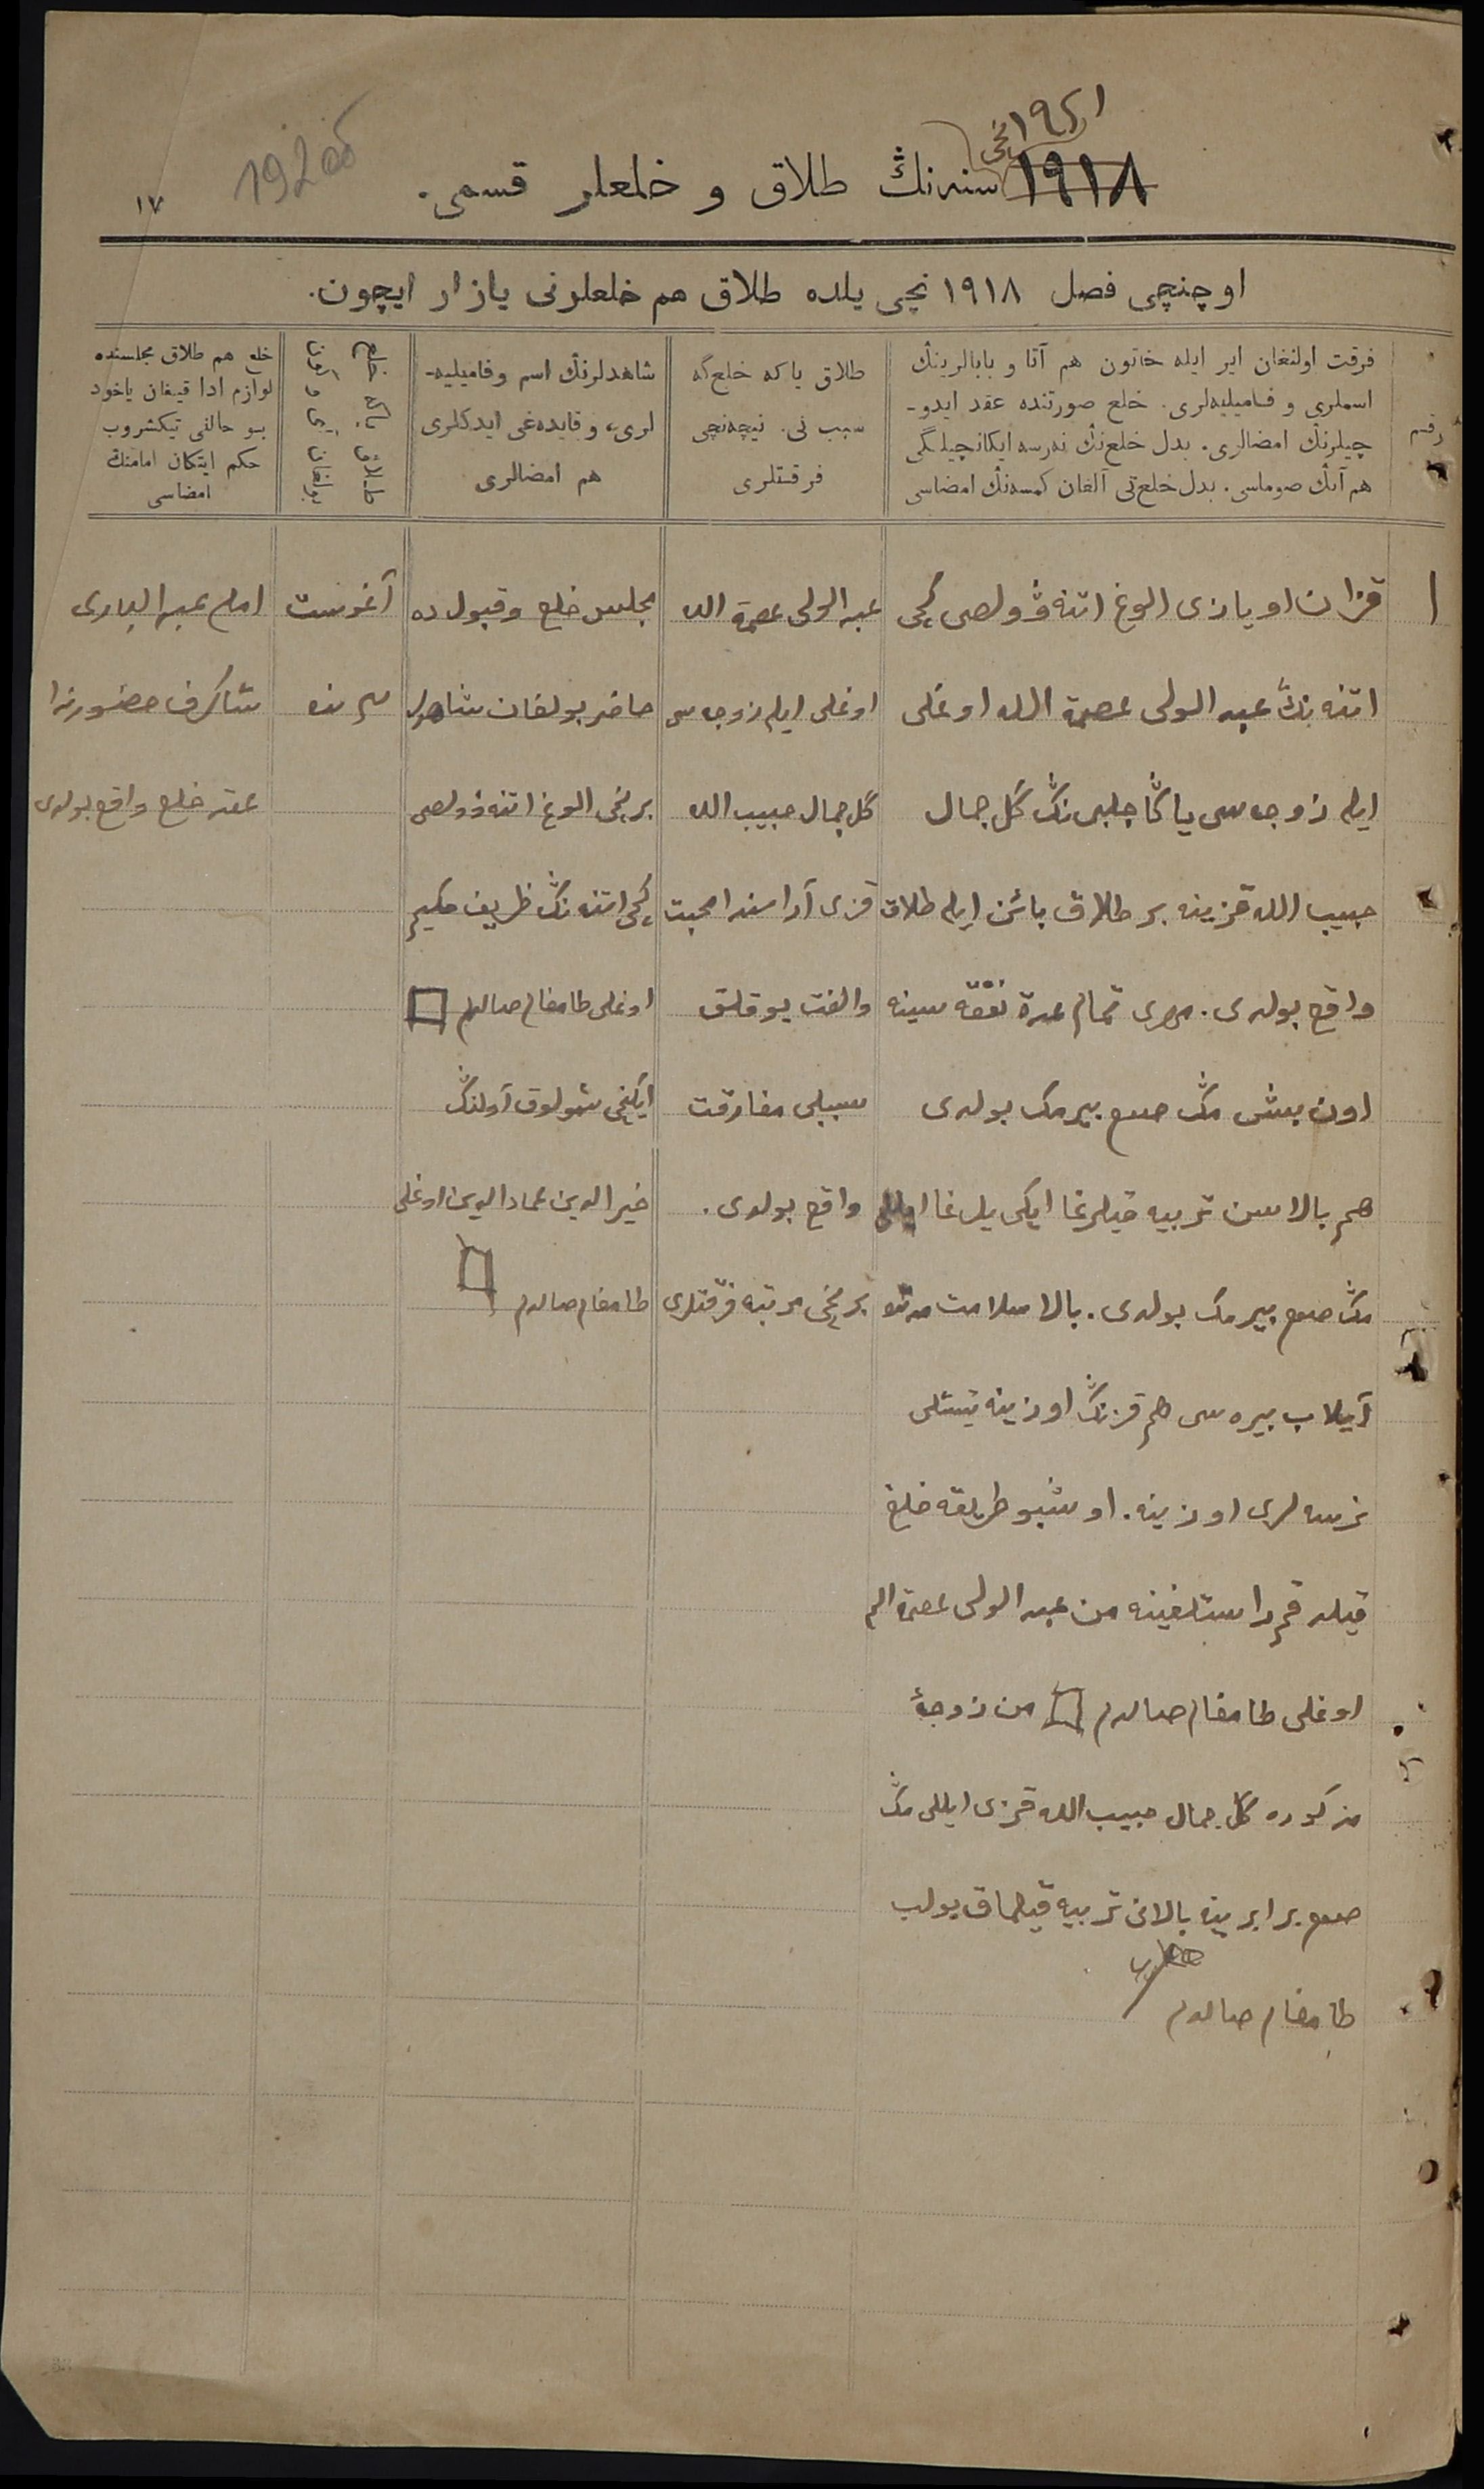 ١٩٢١ نچی
١٩١٨ سنه‌نڭ طلاق و خلعلر قسمی.
192
١٧
اوچنچی فصل ١٩١٨ نچی یلده طلاق هم خلعلرنی یازار ایچون.
رقم
فرقت اولنغان ایر ایله خاتون هم آتا و بابالرینڭ
اسملری و فامیلیه‌لری. خلع صورتنده عقد ایدو-
چیلرنڭ امضالری. بدل خلع‌نڭ نه‌رسه ایکانچیلگی
هم آنڭ صوماسی. بدل خلع‌نی آلغان کمسه‌نڭ امضاسی
طلاق یا که خلع‌گه
سبب نی. نیچه‌نچی
فرقتلری
شاهدلرنڭ اسم و فامیلیه-
لری، و قایده‌غی ایدکلری
هم امضالری
خلع یا که طلاق
بولغان آی و کون
خلع هم طلاق مجلسنده
لوازم ادا قیلغان یاخود
بو حالنی تیکشروب
حکم ایتکان امامنڭ
امضاسی
١
قزان اویازی الوغ اتنه ڤولصی کچی
اتنه‌نڭ عبد الولی عصمة الله اوغلی
ایله زوجه‌سی یاڭا چلبی‌نڭ گل جمال
حبیب الله قزینه بر طلاق بائن ایله طلاق
واقع بولدی. مهری تمام عدة نفقه سینه
اون بش مڭ صوم بیرمک بولدی
هم بالاسن تربیه قیلرغا ایکی یلرغا ایللی
مڭ صوم بیرمک بولدی. بالا سلامت
آیلاب بیره‌سی هم قزنڭ اوزینه تیشلی
نرسه‌لری اوزینه. اوشبو طریقه خلع
قیلدقم راستلغینه من عبد الولی عصمة الله
اوغلی طامغام صالدم من زوجهٔ
مذکوره گل جمال حبیب الله قزی ایللی مڭ
صوم برابرینه بالانی تربیه قیلماق بولب
طامغام صالدم
عبد الولی عصمة الله
اوغلی ایله زوجه‌سی
گل جمال حبیب الله
قزی آراسندا محبت
والفت یوقلق
سببلی مفارقت
واقع بولدی.
برنچی مرتبه فرقتلری
مجلس خلع و قبول ده
حاضر بولغان شاهدلر
برنچی الوغ اتنه ڤولصی
کچی اتنه‌نڭ ظریف حکیم
اوغلی طامغام صالدم
ایکنچی آولنڭ
خیرالدین عمادالدین اوغلی
طامغام صالدم
آغوست
٣ نده
امام عبد الباری
شاکرف حضورندا
عقد خلع واقع بولدی